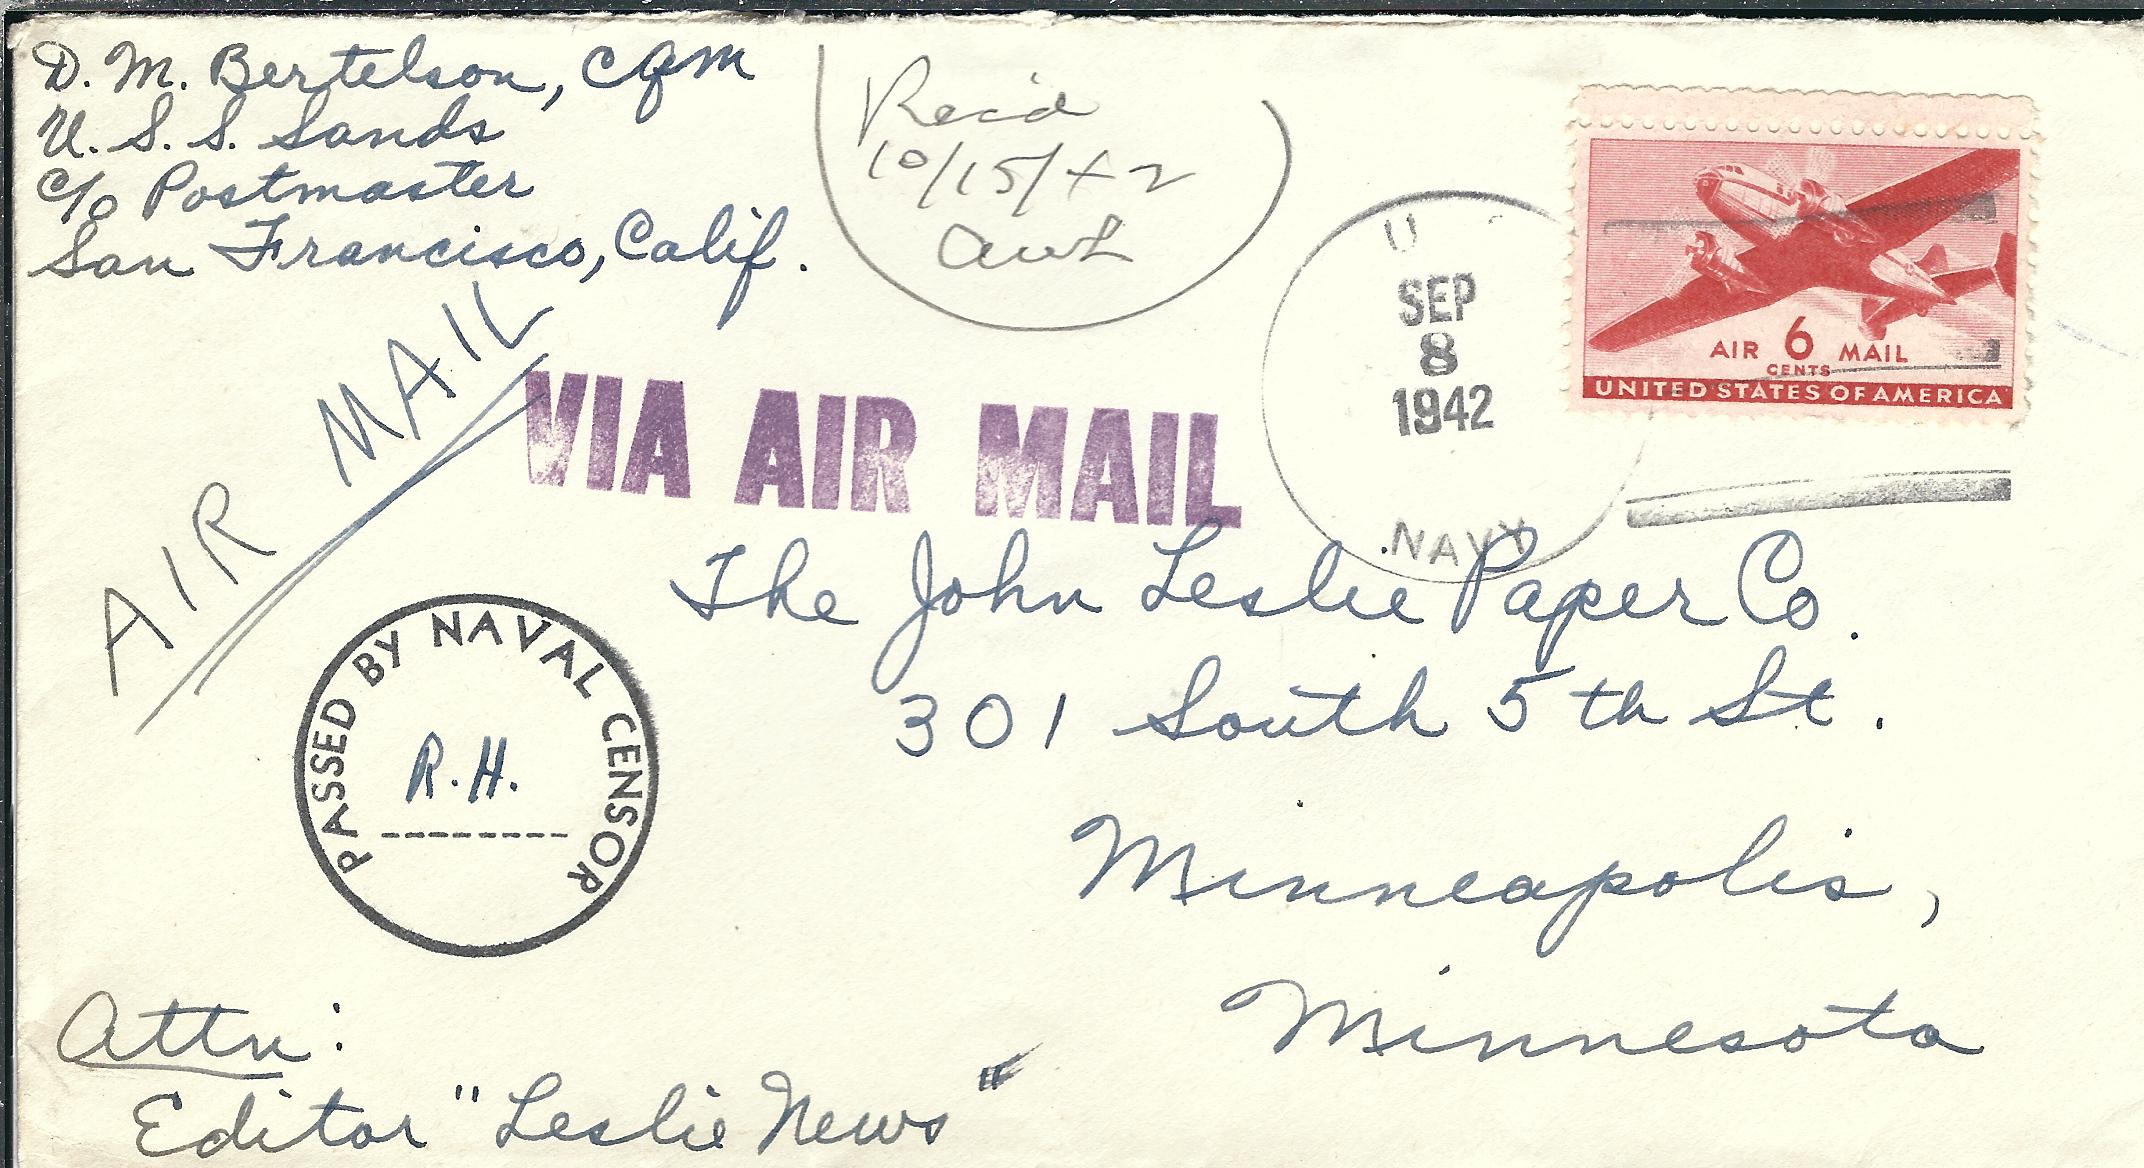 D. M. Bertelson, CQM
U. S. S. Sands
c/o Postmaster
San Francisco, Calif.
Rec'd
10/15/42
U
SEP
8
1942
NAVY
AIR 6 MAIL
CENTS
UNITED STATES OF AMERICA
AIR MAIL
VIA AIR MAIL
The John Leslie Paper Co.
301 South 5th St.
Minneapolis,
Minnesota
PASSED BY NAVAL CENSOR
R.H.
Attn:
Editor "Leslie News"